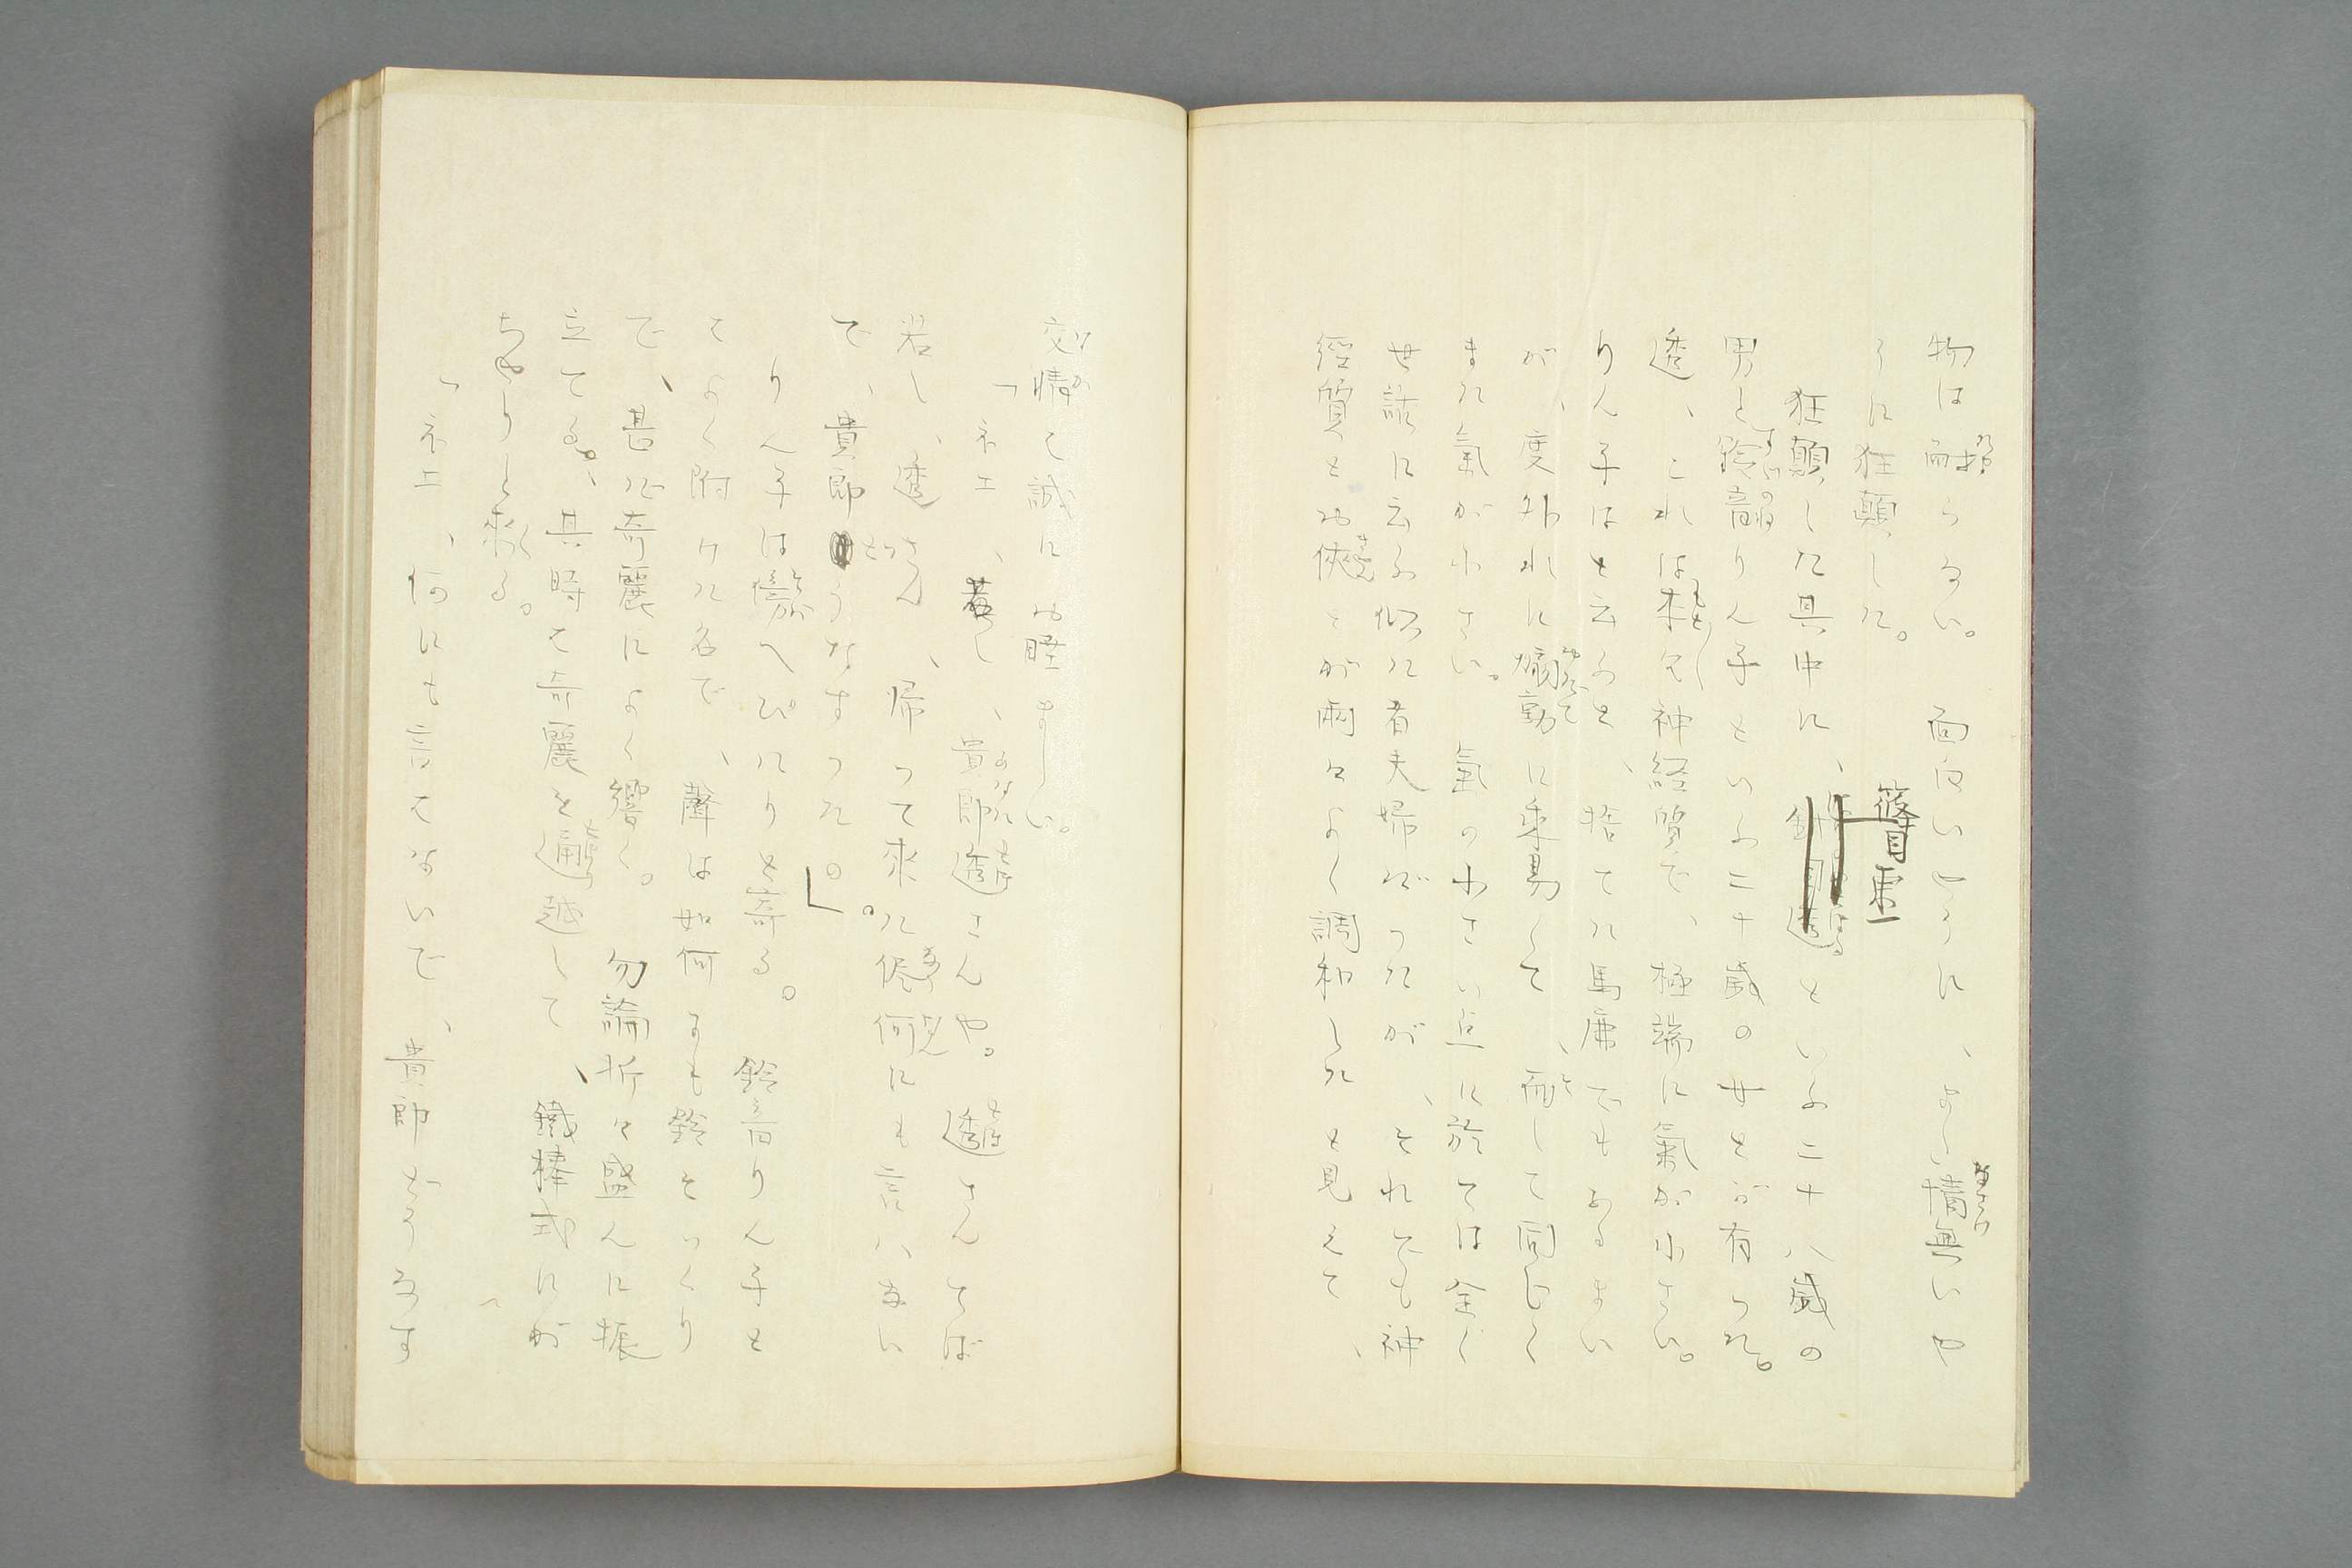 物は耐らない。面白いやうに、よく情無いや
うに狂顛した。
狂顛した其中に、篠目透といふ二十八歳の
男と鈴音りん子といふ二十歳の女とが有つた。
透、これは神経質で、極端に氣が小さい。
りん子はと云ふと、捨てた馬鹿でもあるまい
が、度外れに煽動に乗易くて、而して同じく
また氣が小さい。氣の小さい点に於ては全く
世話に云ふ似た者夫婦だつたが、それでも神
經質とお侠とが両々よく調和したと見えて、
交情て誠にお睦ましい。
「ネエ、若し、貴郎透さんや。透さんてば
若し、透さん、帰つて来た侭何にも言はない
で、貴郎どうなすつた。」
りん子は傍へぴたりと寄る。鈴音りん子と
てよく附けた名で、聲は如何にも鈴そつくり
で、甚だ奇麗によく響く。勿論折々盛んに振
立てる。其時て奇麗を通越して、鐵棒式にが
ちやりと来る。
「ネエ、何にも言はないで、貴郎どうなす